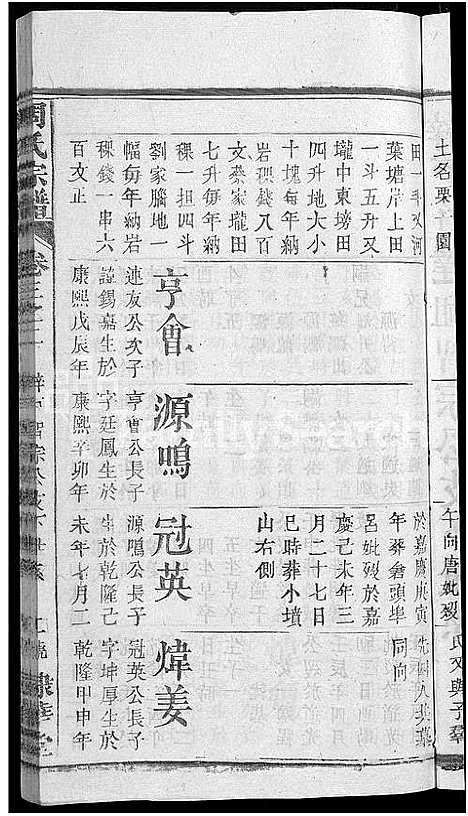 土名栗
園
田一斗
葉塘岸上田
一斗五升又
壠中東塝田
四升地大小
十塊每年納
岩稞錢八百
文桼家壠田
七升每年納
稞一担四斗
劉家腦地一
幅每年納岩
稞錢一串六
百文正
亨會
連友公次子
謹錫嘉生於
康熙戊辰年
源鳴
亨會公長子
字廷鳳生於
康熙辛卯年
於嘉慶庚寅
年葬倉頭埠
呂妣歿於嘉
慶己未年三
月二十七日
巳時葬小墳
山右側
冠英
源鳴公長子
生於乾隆己
未年七月二
同向
煒姜
冠英公長子
字坤厚生於
乾隆甲申年
午向唐妣歿
周氏宗譜
卷